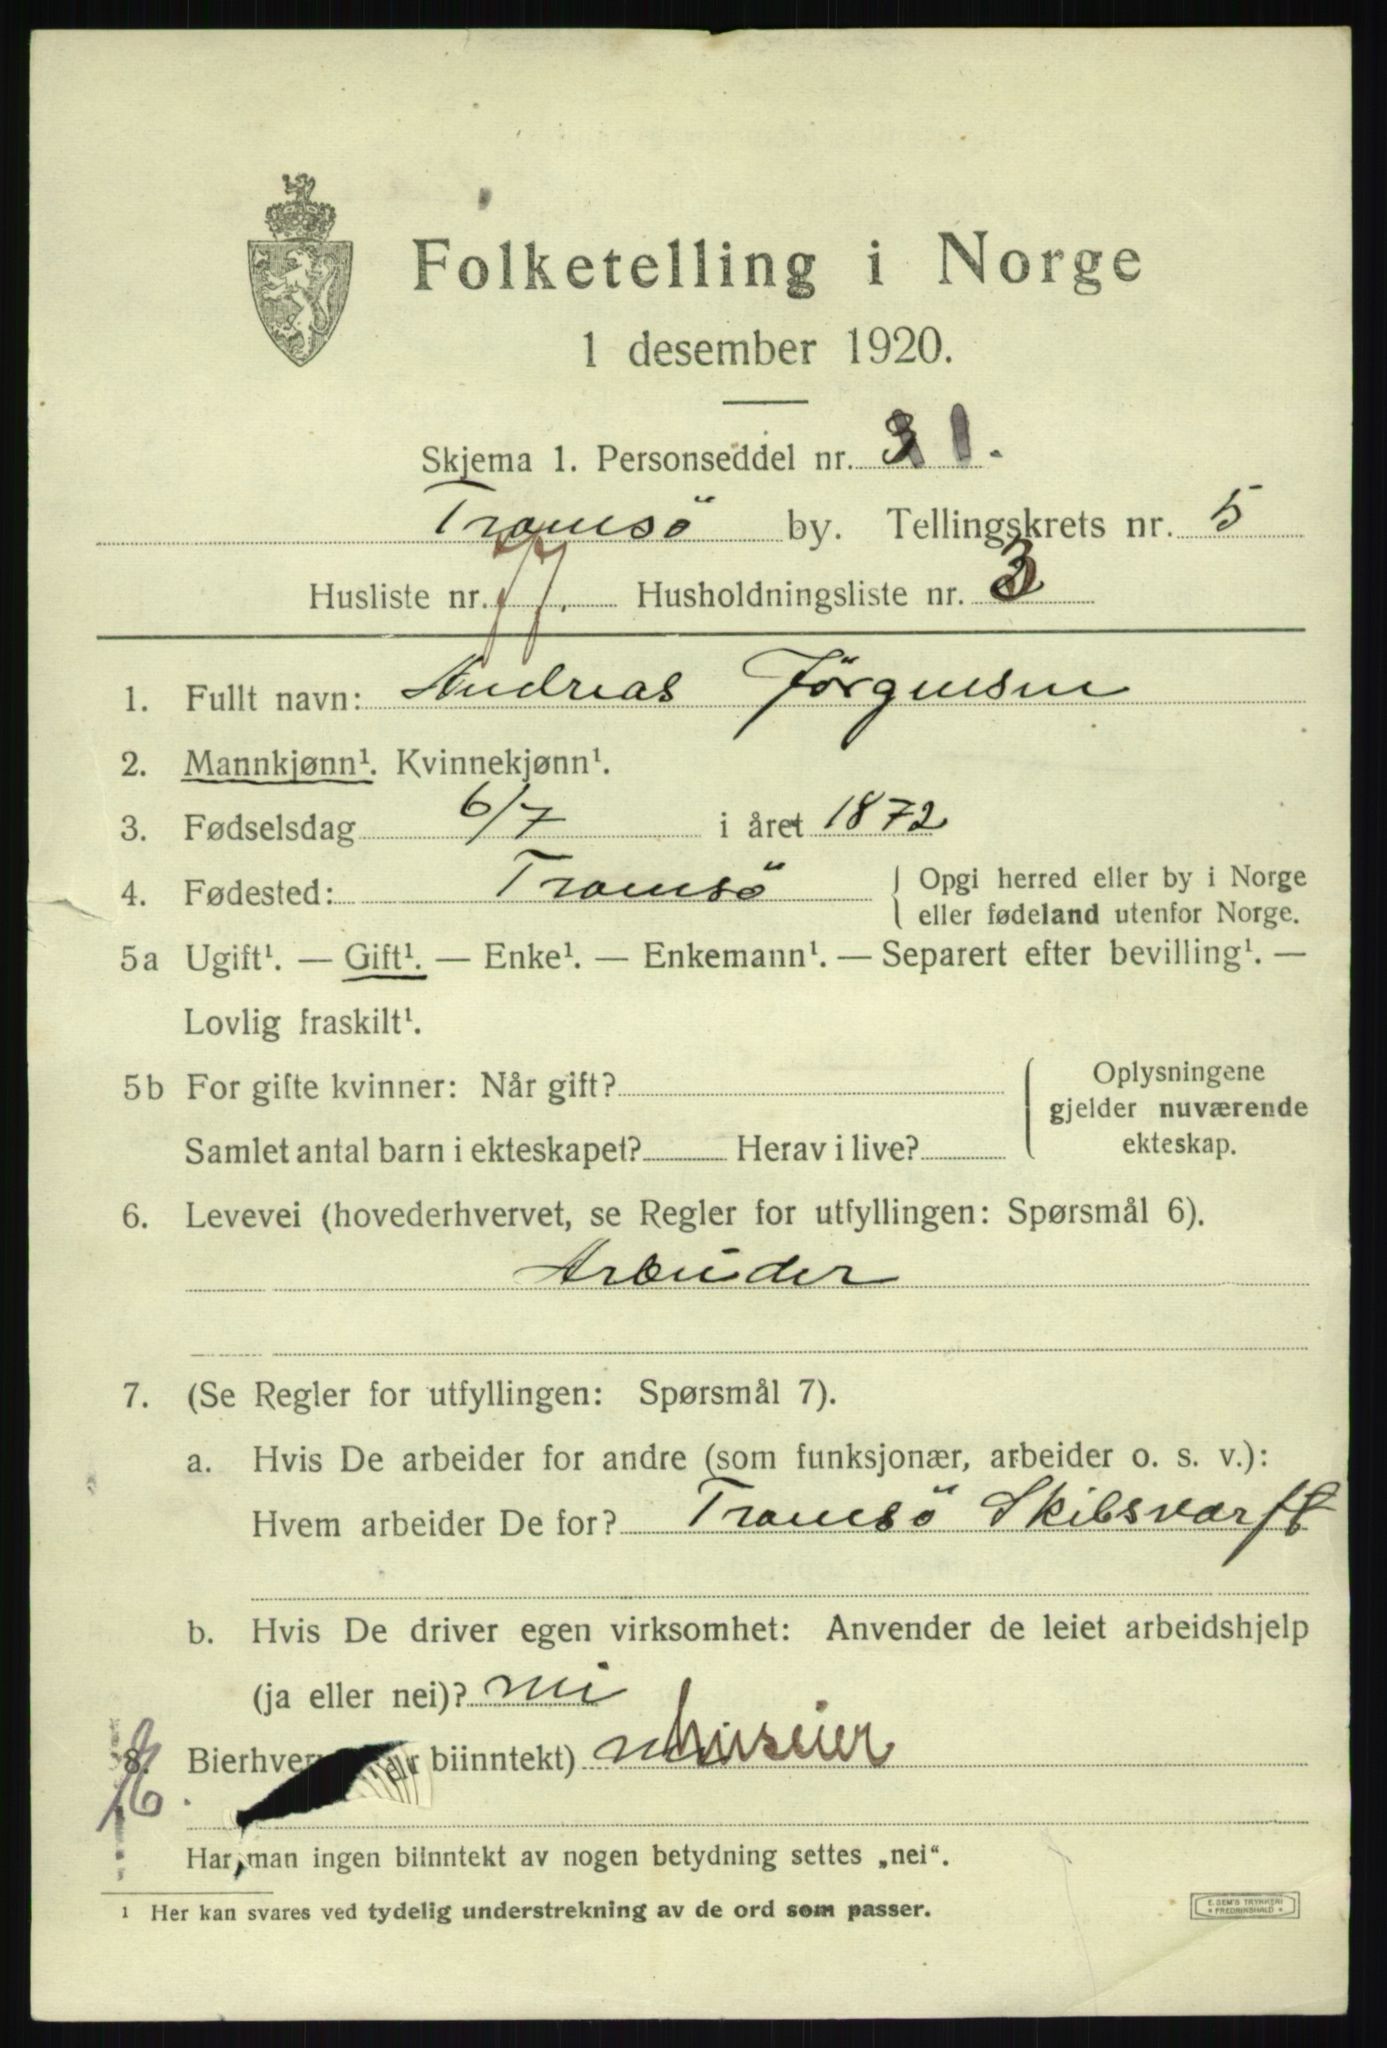 Folketelling i Norge
1 desember 1920.
Skjema 1. Personseddel nr. 1.
Tromsö by. Tellingskrets nr. 5
Husliste nr. 77. Husholdningsliste nr. 3
1. Fullt navn: Andreas Jörgensen
2. Mannkjønn¹. Kvinnekjønn¹.
3. Fødselsdag 6/7 i året 1872
4. Fødested: Tromsö { Opgi herred eller by i Norge
eller fødeland utenfor Norge.
5a Ugift¹. — Gift¹. — Enke¹. — Enkemann¹. — Separert efter bevilling¹. —
Lovlig fraskilt¹.
5b For gifte kvinner: Når gift? { Oplysningene
gjelder nuværende
Samlet antal barn i ekteskapet? Herav i live? ekteskap.
6. Levevei (hovederhvervet, se Regler for utfyllingen: Spørsmål 6).
Arbeider
7. (Se Regler for utfyllingen: Spørsmål 7).
a. Hvis De arbeider for andre (som funksjonær, arbeider o. s. v.):
Hvem arbeider De for? Tromsö Skibsværft
b. Hvis De driver egen virksomhet: Anvender de leiet arbeidshjelp
(ja eller nei)? nei
8. Bierhverv biinntekt) huseier
Har man ingen biinntekt av nogen betydning settes „nei".
¹ Her kan svares ved tydelig understrekning av de ord som passer.
E. SEM'S TRYKKERI
* FREDRIKSHALD *